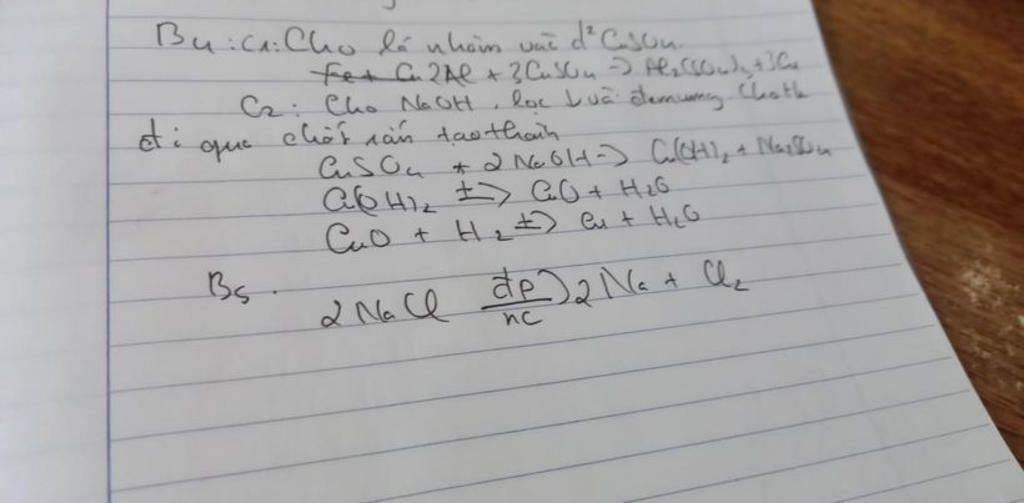 B4: C1: Cho lá nhôm vào d² CuSO4
Fe + Cu 2Al + 3CuSO4 → Al2(SO4)3 + 3Cu
C2: Cho NaOH, lọc ↓ và đem nung Cho H2
đi qua chất rắn tạo thành
CuSO4 + 2NaOH → Cu(OH)2 + Na2SO4
Cu(OH)2 t→ CuO + H2O
CuO + H2 t→ Cu + H2O
B5.
2NaCl đp/nc→ 2Na + Cl2